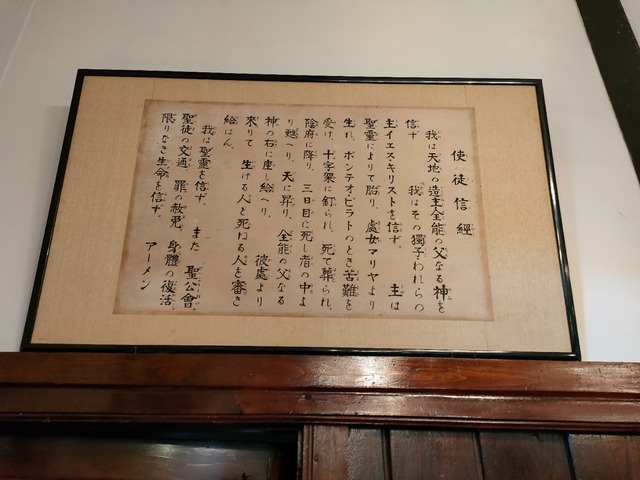 使徒信經
我は天地の造主全能の父なる神を
信ず 我はその獨子われらの
主イエス・キリストを信ず。 主は
聖靈によりて胎り、處女マリヤより
生れ、ポンテオ・ピラトのとき苦難を
受け、十字架に釘られ、死て葬られ、
陰府に降り、三日目に死し者の中よ
り甦へり、天に昇り、全能の父なる
神の右に座し給へり。彼處より
來りて 生ける人と死ねる人を審き
給はん。
我は聖靈を信ず。 また 聖公會。
聖徒の交通 罪の赦免 身體の復活
限りなき生命を信ず。 アーメン